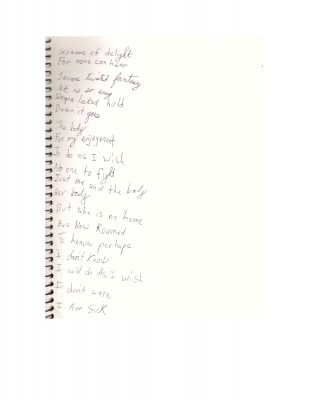 screams of delight
For none can hear
Some twisted fantasy
It is so easy
locked hold
Down it goes
The body
For my enjoyment
To do as I wish
No one to fight
Just me and the body
Her body
But she is no home
Has New Roumed
To heaven perhaps
I don't know
I will do As I wish
I don't care
I Am Sick